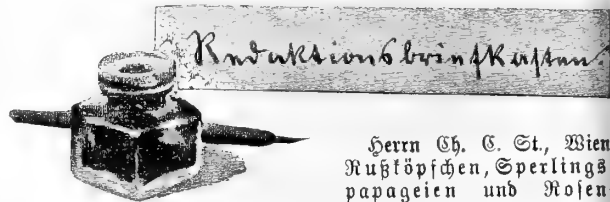 Redaktionsbriefkasten.
Herrn Ch. C. St., Wien
Rußköpfchen, Sperlings
papageien und Rosen